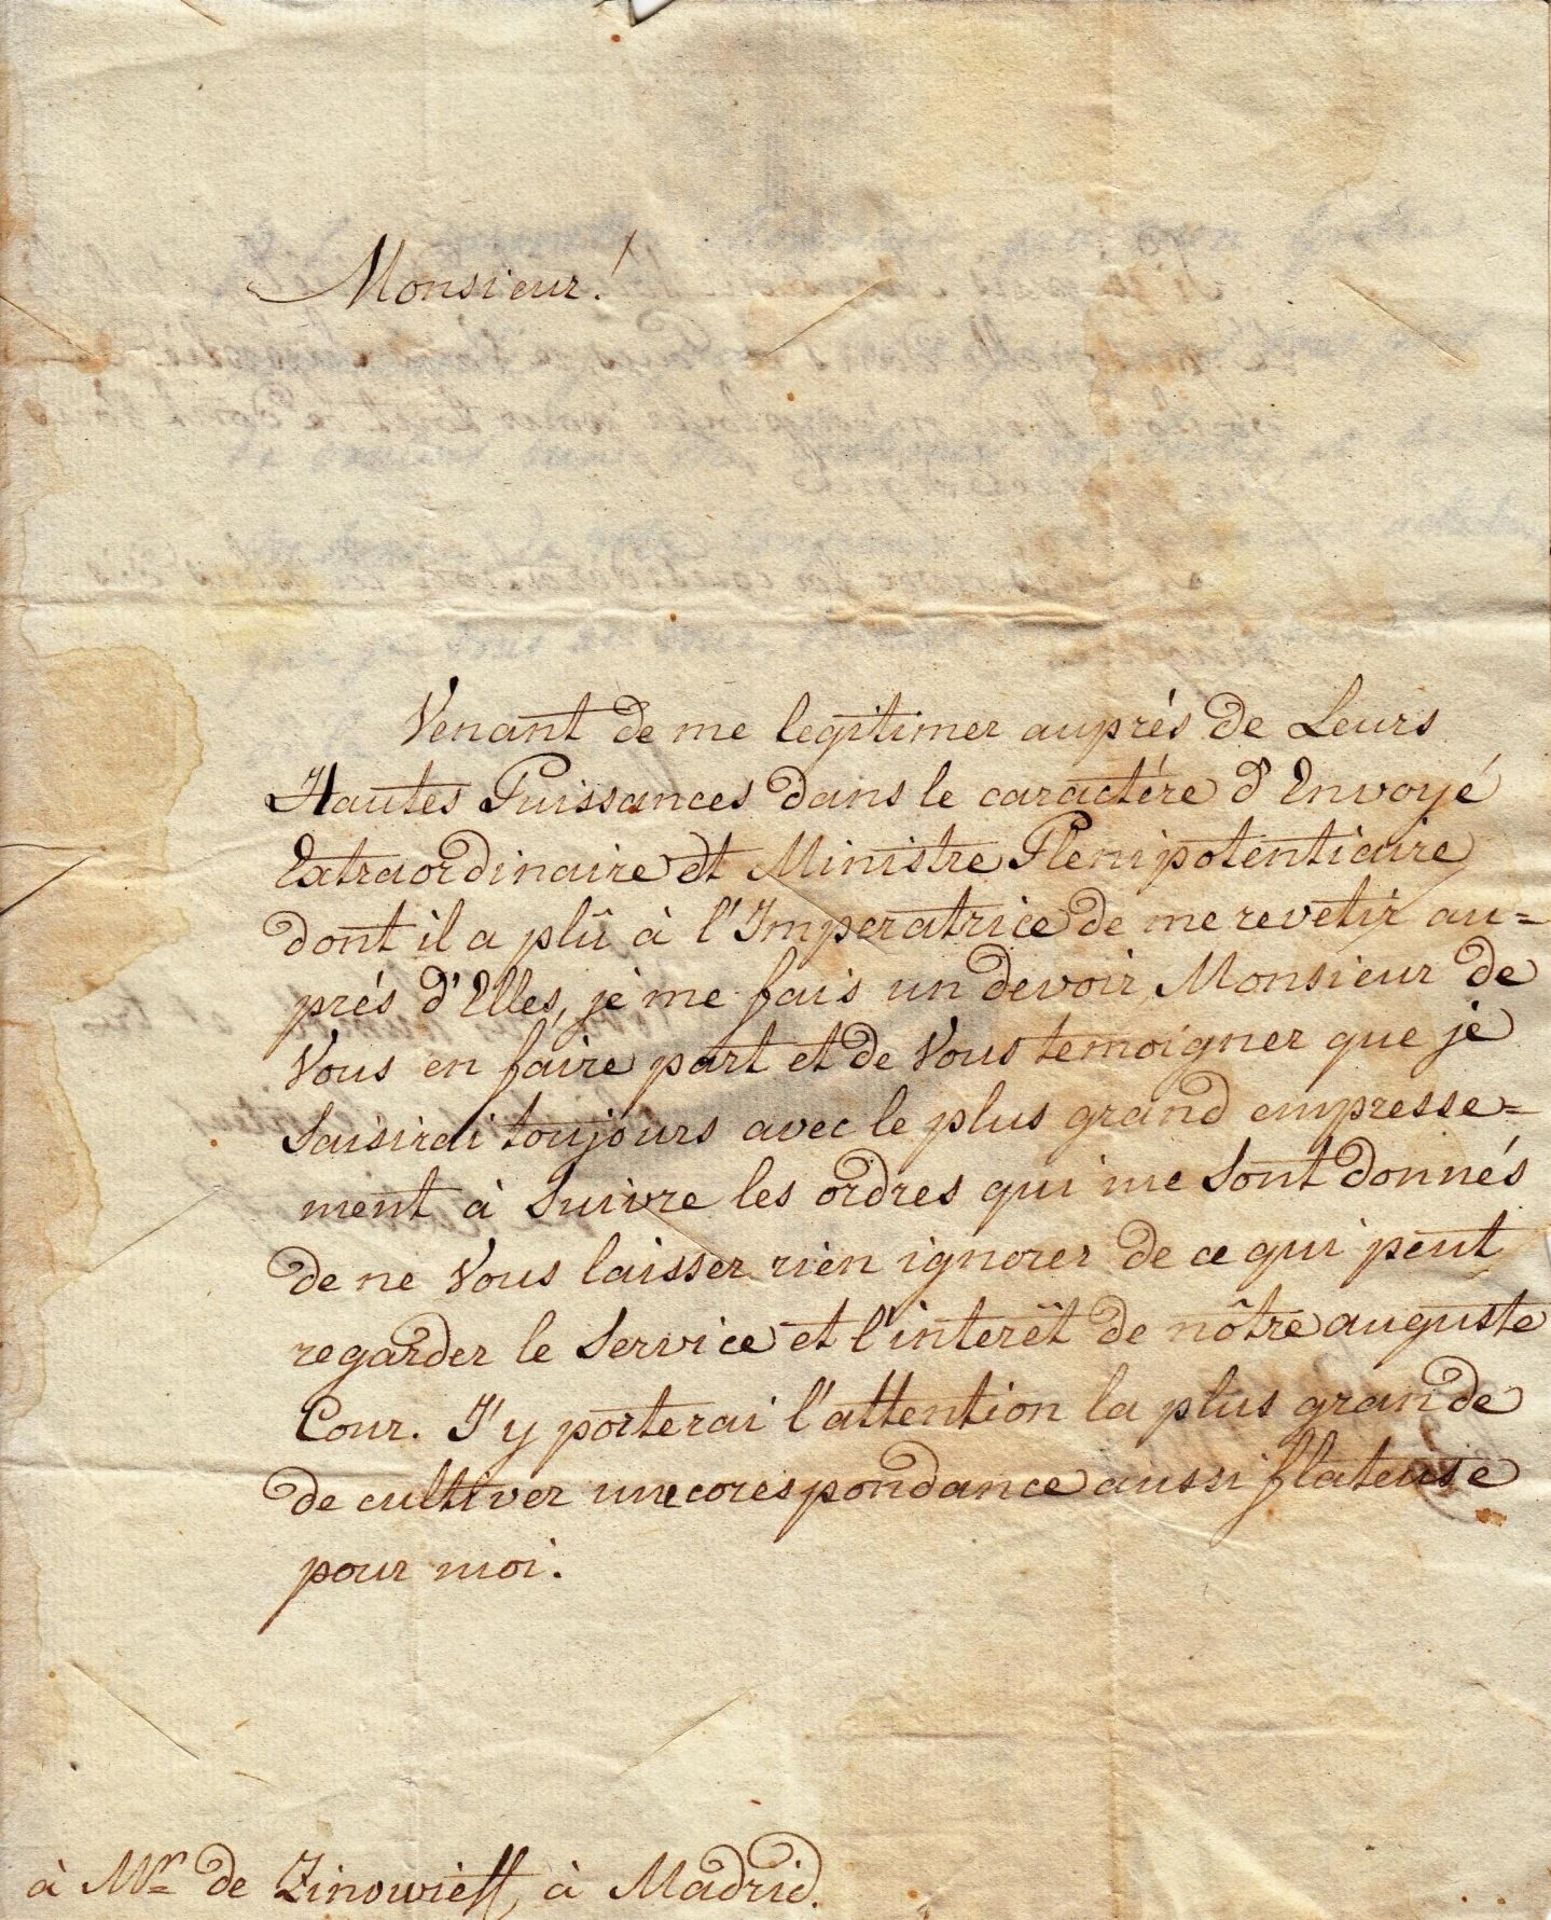 Monsieur!
Venant de me legitimer auprés de Leurs
Hautes Puissances dans le caractére d'Envoyé
Extraordinaire et Ministre Plenipotentiaire
dont il a plû à l'Imperatrice de me revetir au=
prés d'Elles, je me fais un devoir, Monsieur de
Vous en faire part et de Vous temoigner que je
Saisirai toujours avec le plus grand empresse=
ment à Suivre les ordres qui me Sont donnés
de ne Vous laisser rien ignorer de ce qui peut
regarder le Service et l'interêt de nôtre auguste
Cour. J'y porterai l'attention la plus grande
de cultiver une corespondance aussi flateuse
pour moi.
à Mr de Zinowieff, à Madrid.